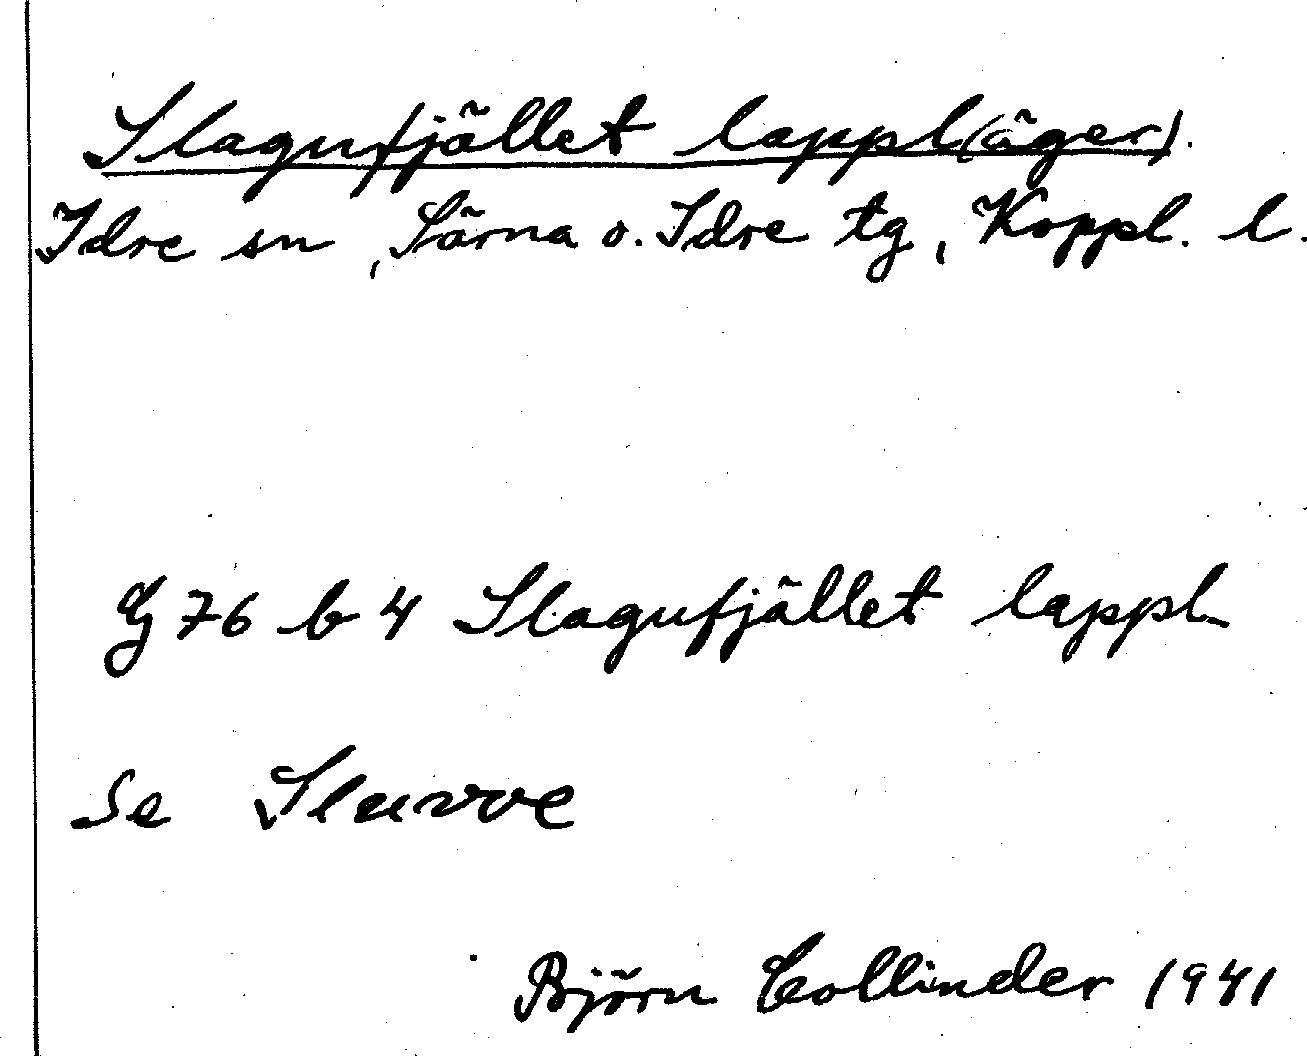 Slagufjället lappl(äger).
Idre sn, Särna o. Idre tg, Koppl. l.
G 76 b 4 Slagufjället lappl.
Se Sluvve
Björn Collinder 1941